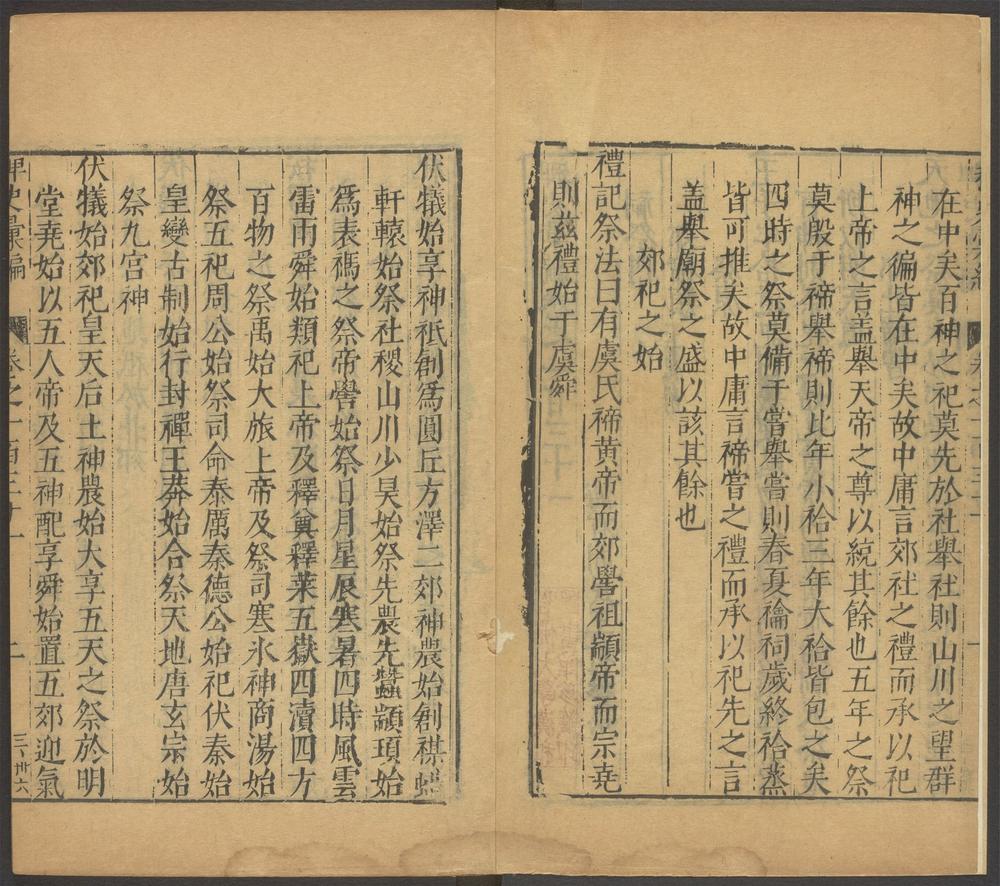 在中矣百神之祀莫先於社舉社則山川之望群
神之徧皆在中矣故中庸言郊社之禮而承以祀
上帝之言盖舉天帝之尊以統其餘也五年之祭
莫殷于禘舉禘則比年小祫三年大祫皆包之矣
四時之祭莫備于嘗舉嘗則春夏禴祠歲終祫蒸
皆可推矣故中庸言禘嘗之禮而承以祀先之言
盖舉廟祭之盛以該其餘也
郊祀之始
禮記祭法曰有虞氏禘黃帝而郊嚳祖顓帝而宗堯
則兹禮始于虞舜
伏犧始享神祇創爲圓丘方澤二郊神農始創禖蜡
軒轅始祭社稷山川少昊始祭先農先蠶顓頊始
爲表禡之祭帝嚳始祭日月星辰寒暑四時風雲
雷雨舜始類祀上帝及釋奠釋菜五嶽四瀆四方
百物之祭禹始大旅上帝及祭司寒氷神商湯始
祭五祀周公始祭司命泰厲秦德公始祀伏秦始
皇變古制始行封禪王莽始合祭天地唐玄宗始
祭九宫神
伏犧始郊祀皇天后土神農始大享五天之祭於明
堂堯始以五人帝及五神配享舜始置五郊迎氣
稗史彙編 卷之一百三十一 二 三、卅六